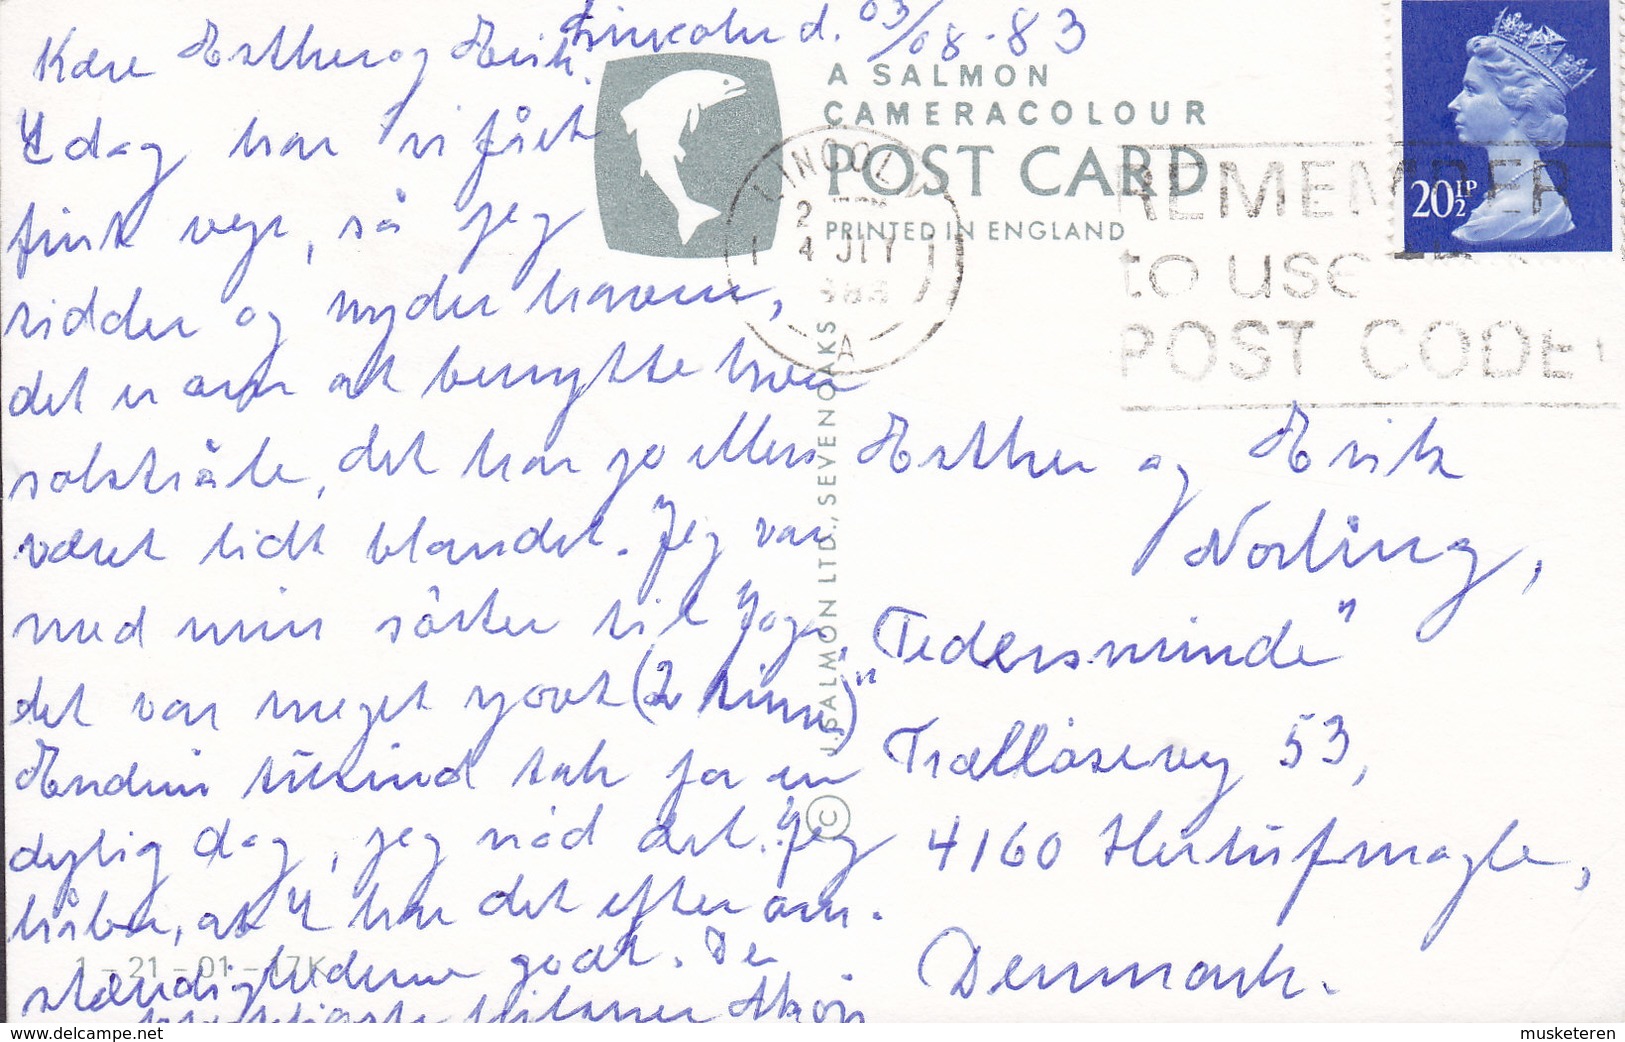 Lincoln d. 03/08-83
Kære Esther og Erik.
I dag har vi fået
fint vejr, så jeg
sidder og nyder haven,
det er om at benytte hver
solstråle, det har jo ellers
været lidt blandet. Jeg var
med min søster til Yoga,
det var meget sjovt (2 timer)
Endnu tusind tak for en
dejlig dag, jeg nød det. Jeg
håber, at I har det efter om-
stændighederne godt. De
hjerteligste hilsner
A SALMON
CAMERACOLOUR
POST CARD
PRINTED IN ENGLAND
LINCOLN
2
4 JLY
1983
A
REMEMBER
to use the
POST CODE
20½P
© J. SALMON LTD., SEVENOAKS
Esther og Erik
Norling,
"Pedersminde"
Trælløsevej 53,
4160 Herlufmagle,
Denmark.
1-21-01-17K
www.delcampe.net
musketeren